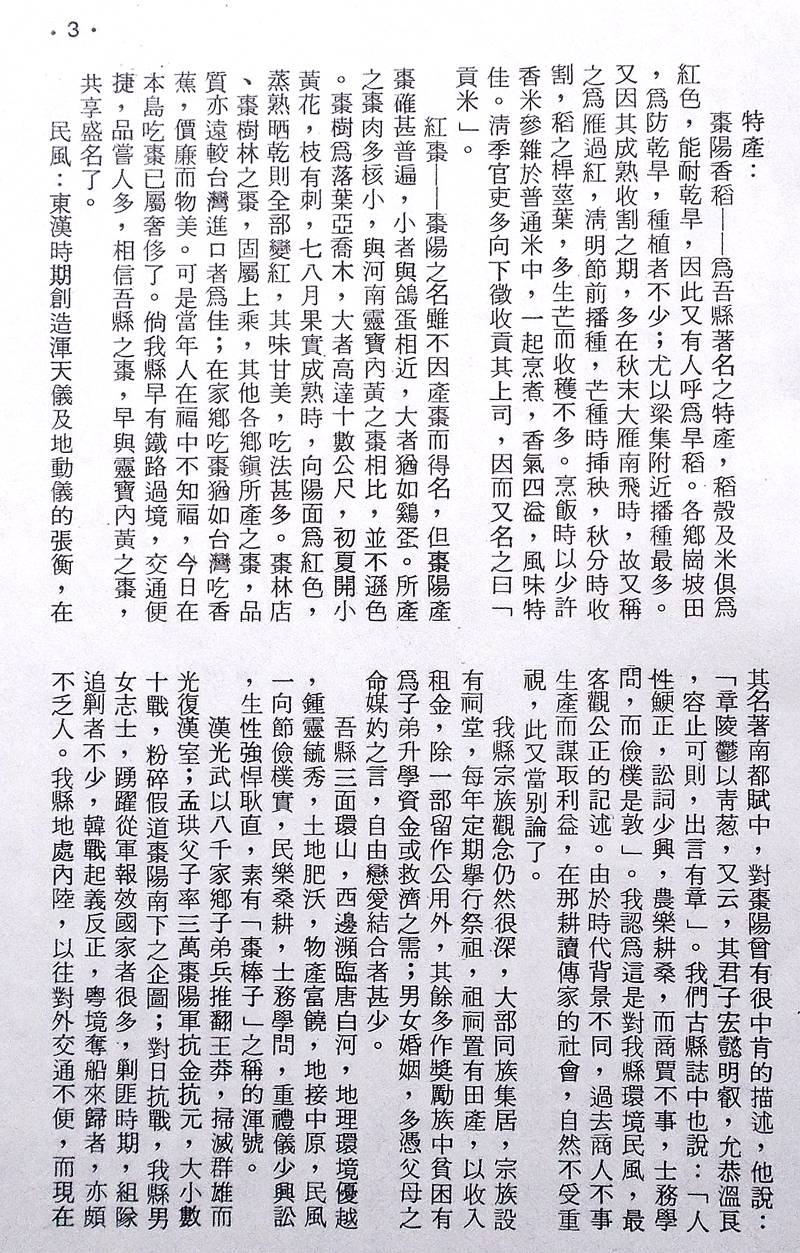 ·3·
特產：
棗陽香稻——爲吾縣著名之特產，稻殼及米俱爲
紅色，能耐乾旱，因此又有人呼爲旱稻。各鄉崗坡田
，爲防乾旱，種植者不少；尤以梁集附近播種最多。
又因其成熟收割之期，多在秋末大雁南飛時，故又稱
之爲雁過紅，淸明節前播種，芒種時揷秧，秋分時收
割，稻之桿莖葉，多生芒而收穫不多。烹飯時以少許
香米參雜於普通米中，一起烹煮，香氣四溢，風味特
佳。淸季官吏多向下徵收貢其上司，因而又名之曰「
貢米」。
紅棗——棗陽之名雖不因產棗而得名，但棗陽產
棗確甚普遍，小者與鴿蛋相近，大者猶如鷄蛋。所產
之棗肉多核小，與河南靈寶內黃之棗相比，並不遜色
。棗樹爲落葉亞喬木，大者高達十數公尺，初夏開小
黃花，枝有刺，七八月果實成熟時，向陽面爲紅色，
蒸熟晒乾則全部變紅，其味甘美，吃法甚多。棗林店
、棗樹林之棗，固屬上乘，其他各鄉鎭所產之棗，品
質亦遠較台灣進口者爲佳；在家鄉吃棗猶如台灣吃香
蕉，價廉而物美。可是當年人在福中不知福，今日在
本島吃棗已屬奢侈了。倘我縣早有鐵路過境，交通便
捷，品嘗人多，相信吾縣之棗，早與靈寶內黃之棗，
共享盛名了。
民風：東漢時期創造渾天儀及地動儀的張衡，在
其名著南都賦中，對棗陽曾有很中肯的描述，他說：
「章陵鬱以靑葱，又云，其君子宏懿明叡，允恭溫良
，容止可則，出言有章」。我們古縣誌中也說：「人
性鯁正，訟詞少興，農樂耕桑，而商賈不事，士務學
問，而儉樸是敦」。我認爲這是對我縣環境民風，最
客觀公正的記述。由於時代背景不同，過去商人不事
生產而謀取利益，在那耕讀傳家的社會，自然不受重
視，此又當别論了。
我縣宗族觀念仍然很深，大部同族集居，宗族設
有祠堂，每年定期舉行祭祖，祖祠置有田產，以收入
租金，除一部留作公用外，其餘多作獎勵族中貧困有
爲子弟升學資金或救濟之需；男女婚姻，多憑父母之
命媒妁之言，自由戀愛結合者甚少。
吾縣三面環山，西邊瀕臨唐白河，地理環境優越
，鍾靈毓秀，土地肥沃，物產富饒，地接中原，民風
一向節儉樸實，民樂桑耕，士務學問，重禮儀少興訟
，生性強悍耿直，素有「棗棒子」之稱的渾號。
漢光武以八千家鄉子弟兵推翻王莽，掃滅群雄而
光復漢室；孟珙父子率三萬棗陽軍抗金抗元，大小數
十戰，粉碎假道棗陽南下之企圖；對日抗戰，我縣男
女志士，踴躍從軍報效國家者很多，剿匪時期，組隊
追剿者不少，韓戰起義反正，粵境奪船來歸者，亦頗
不乏人。我縣地處內陸，以往對外交通不便，而現在